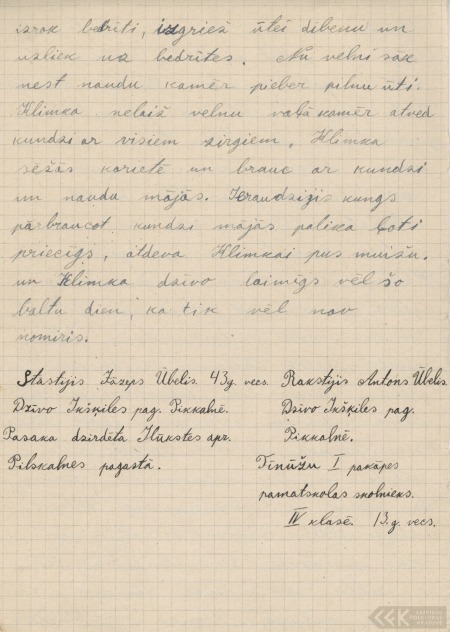 izrok bedrīti, izgriež ūtei dibenu un
uzliek uz bedrītes. Nu velni sāk
nest naudu kamēr pieber pilnu ūti.
Klimka nelaiž velnu vaļā kamēr atved
kundzi ar visiem zirgiem. Klimka
sēžās karietē un brauc ar kundzi
un naudu mājās. Ieraudzījis kungs
pārbraucot kundzi mājās palika ļoti
priecīgs, atdeva Klimkai pus muižu.
un Klimka dzīvo laimīgs vēl šo
baltu dien, ka tik vēl nav
nomiris.
Stāstījis Jāzeps Ūbelis. 43 g. vecs.
Dzīvo Ikšķiles pag. Pikkalnē.
Pasaka dzirdēta Ilūkstes apr.
Pilskalnes pagastā.
Rakstījis Antons Ūbelis.
Dzīvo Ikšķiles pag.
Pikkalnē.
Tīnūžu I pakāpes
pamatskolas skolnieks.
IV klasē. 13.g. vecs.
LATVIEŠU
FOLKLORAS
KRĀTUVE